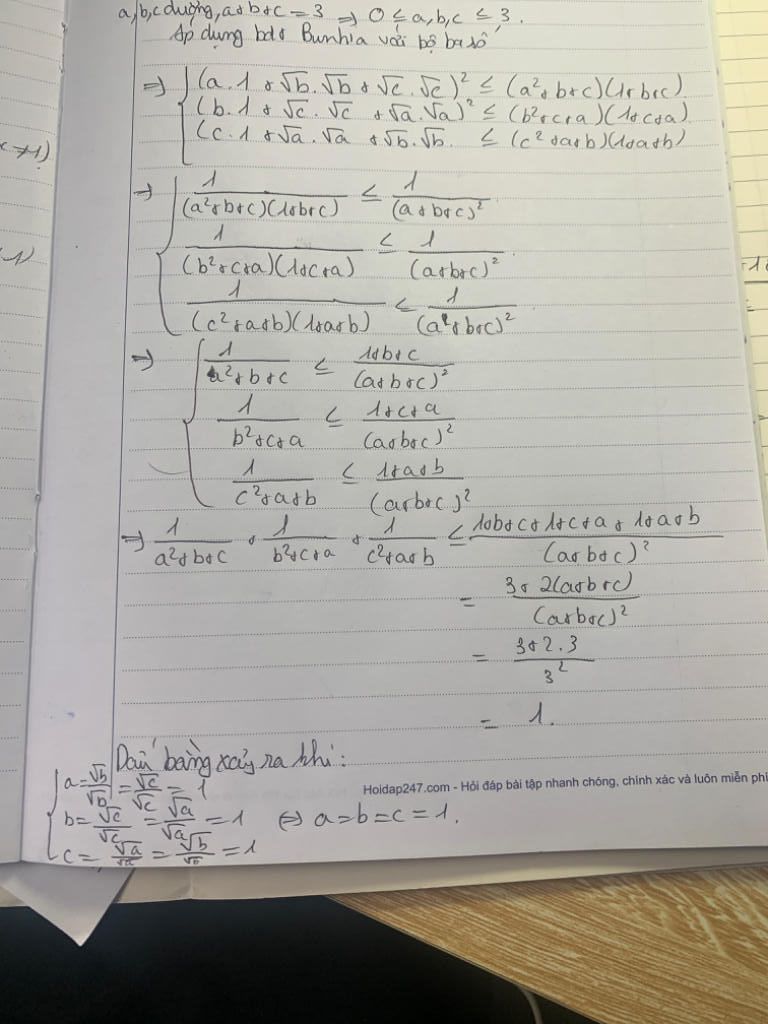 a,b,c dương, a+b+c = 3 ⇒ 0 ≤ a,b,c ≤ 3.
Áp dụng bđt Bunhia với bộ ba số
⇒ { (a.1 + √b.√b + √c.√c)² ≤ (a²+b+c)(1+b+c)
(b.1 + √c.√c + √a.√a)² ≤ (b²+c+a)(1+c+a)
(c.1 + √a.√a + √b.√b. ≤ (c²+a+b)(1+a+b)
⇒ { 1/((a²+b+c)(1+b+c)) ≤ 1/(a+b+c)²
1/((b²+c+a)(1+c+a)) ≤ 1/(a+b+c)²
1/((c²+a+b)(1+a+b)) ≤ 1/(a+b+c)²
⇒ { 1/(a²+b+c) ≤ (1+b+c)/(a+b+c)²
1/(b²+c+a) ≤ (1+c+a)/(a+b+c)²
1/(c²+a+b) ≤ (1+a+b)/(a+b+c)²
⇒ 1/(a²+b+c) + 1/(b²+c+a) + 1/(c²+a+b) ≤ (1+b+c+1+c+a+1+a+b)/(a+b+c)²
= (3+2(a+b+c))/(a+b+c)²
= (3+2.3)/3²
= 1.
Dấu bằng xảy ra khi:
{ a = √b/√b = √c/√c = 1
b = √c/√c = √a/√a = 1 ⇔ a=b=c=1.
c = √a/√a = √b/√b = 1
Hoidap247.com - Hỏi đáp bài tập nhanh chóng, chính xác và luôn miễn phí